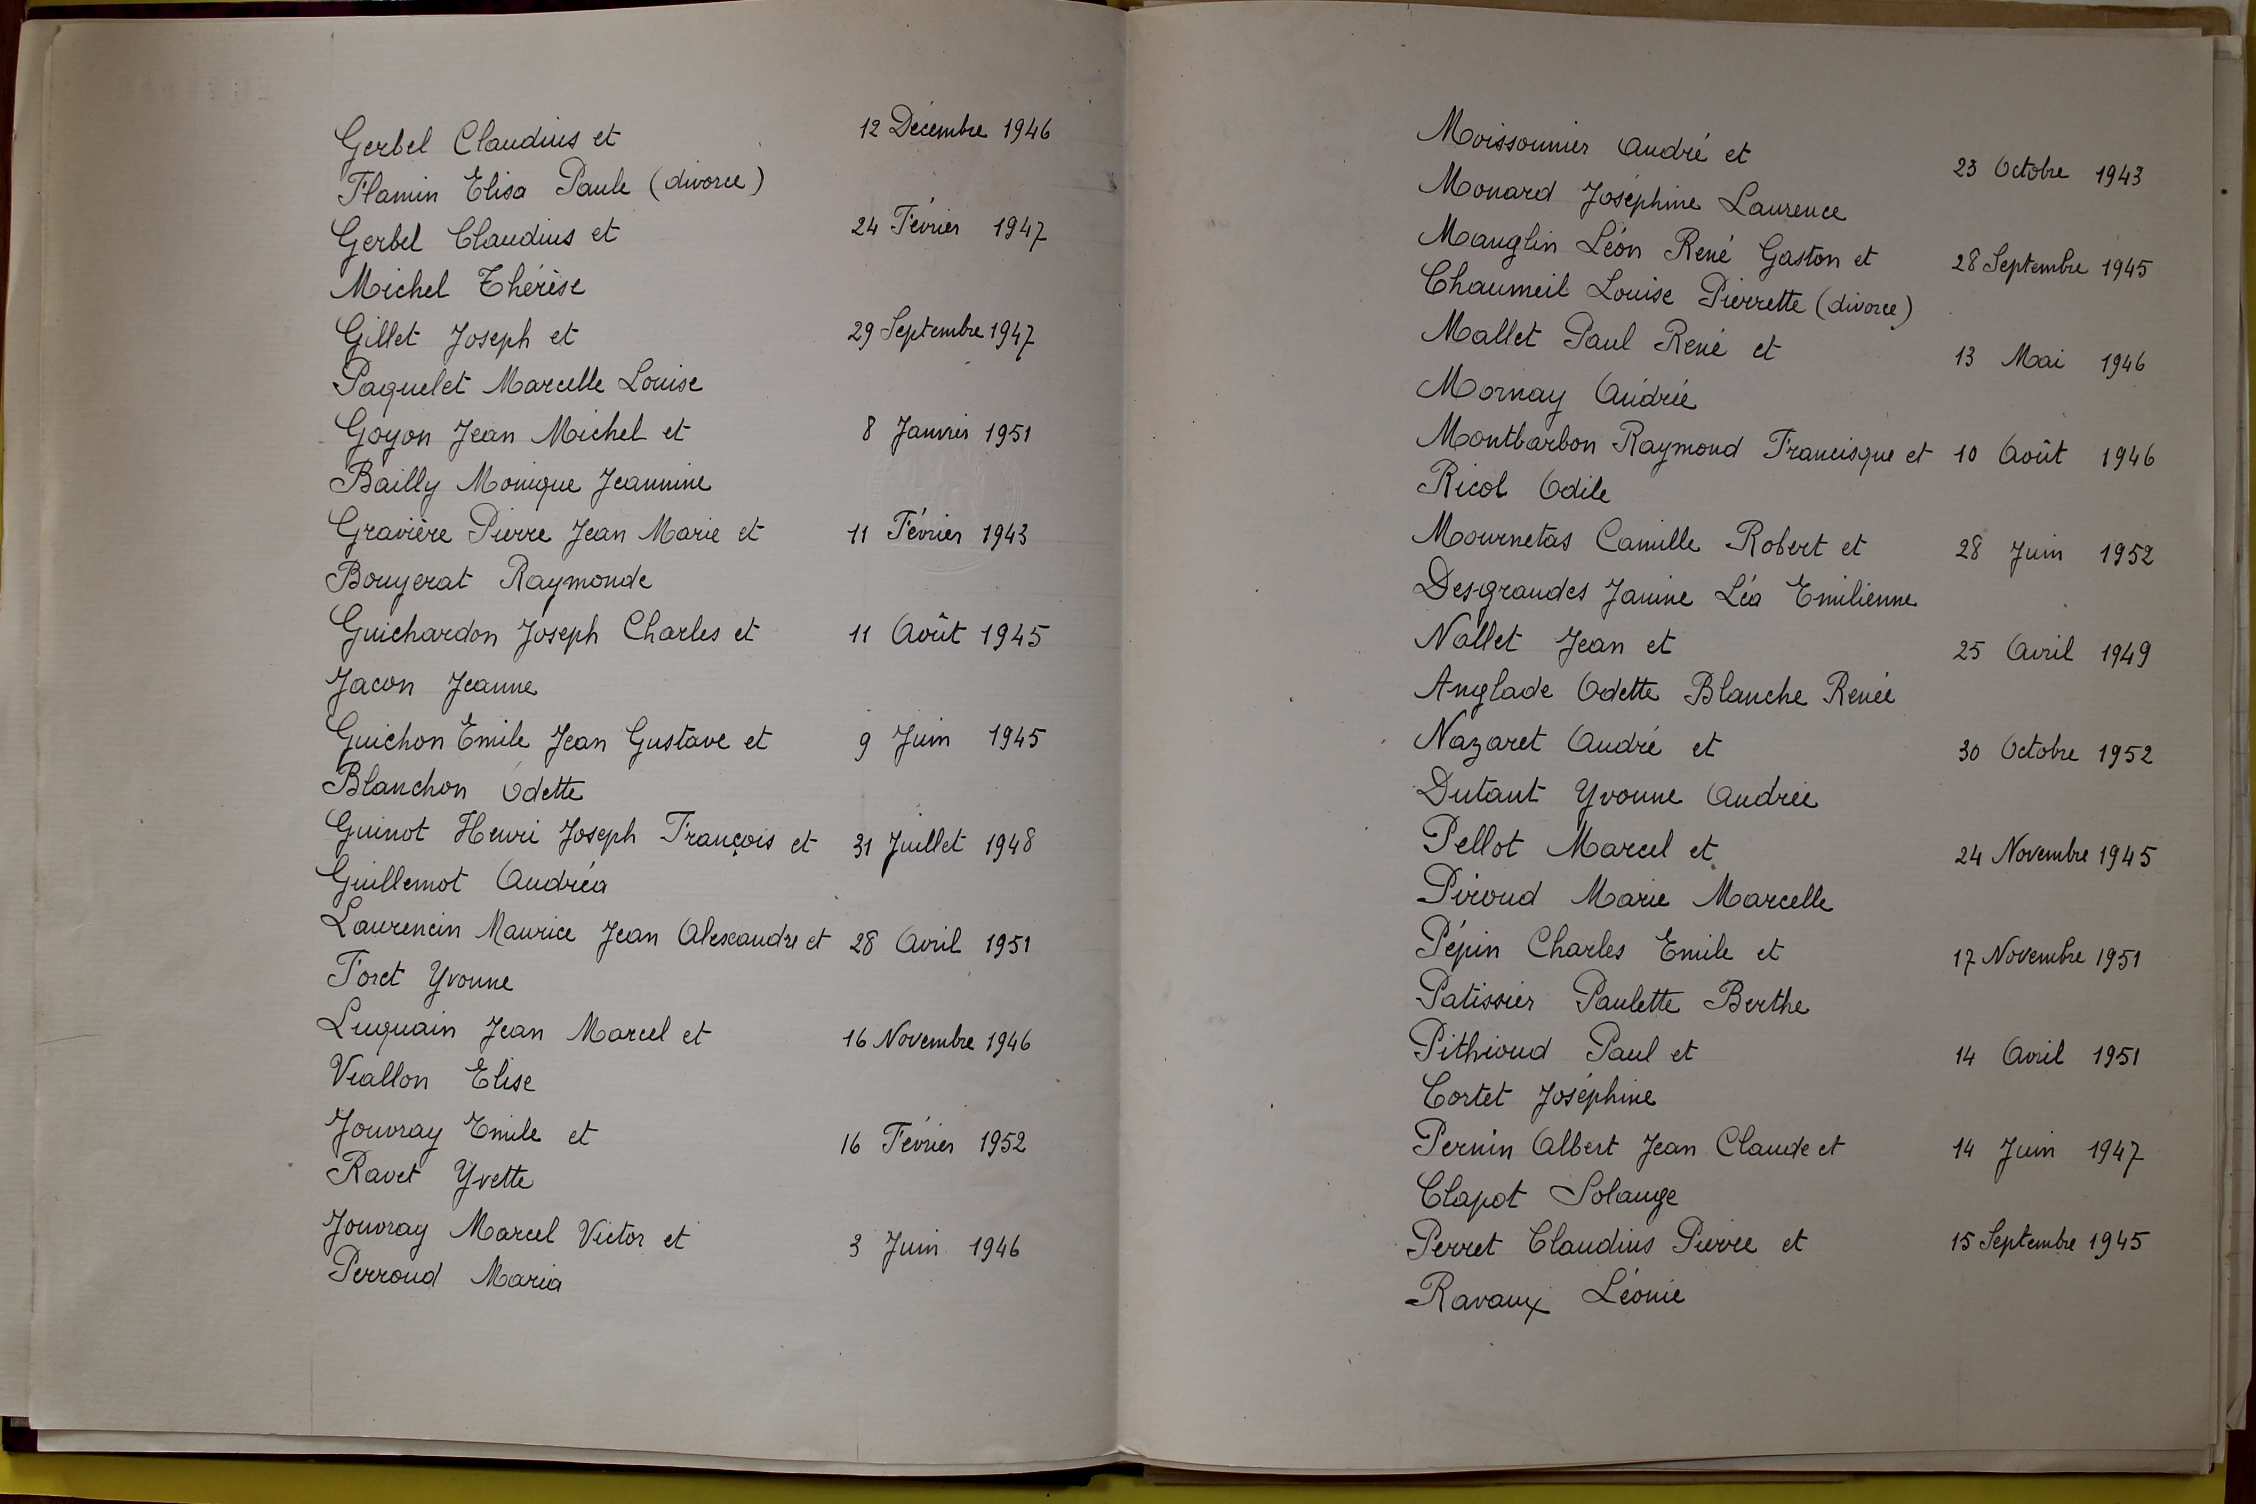 Gerbel Claudius et 12 Décembre 1946
Flamin Elisa Paule (divorce)
Gerbel Claudius et 24 Février 1947
Michel Thérèse
Gillet Joseph et 29 Septembre 1947
Paquelet Marcelle Louise
Goyon Jean Michel et 8 Janvier 1951
Bailly Monique Jeannine
Gravière Pierre Jean Marie et 11 Février 1943
Bouyerat Raymonde
Guichardon Joseph Charles et 11 Août 1945
Jacon Jeanne
Guichon Emile Jean Gustave et 9 Juin 1945
Blanchon Odette
Guinot Henri Joseph François et 31 Juillet 1948
Guillemot Andréa
Laurencin Maurice Jean Alexandre et 28 Avril 1951
Foret Yvonne
Luquain Jean Marcel et 16 Novembre 1946
Viallon Elise
Jouvray Emile et 16 Février 1952
Ravet Yvette
Jouvray Marcel Victor et 3 Juin 1946
Perroud Maria
Moissonnier André et 23 Octobre 1943
Monard Joséphine Laurence
Mauglin Léon René Gaston et 28 Septembre 1945
Chaumeil Louise Pierrette (divorce)
Mallet Paul René et 13 Mai 1946
Mornay Andrée
Montbarbon Raymond Francisque et 10 Août 1946
Ricol Odile
Mournetas Camille Robert et 28 Juin 1952
Desgrandes Janine Léa Emilienne
Nallet Jean et 25 Avril 1949
Anglade Odette Blanche Renée
Nazaret André et 30 Octobre 1952
Dutant Yvonne Andrée
Pellot Marcel et 24 Novembre 1945
Piroud Marie Marcelle
Pépin Charles Emile et 17 Novembre 1951
Patissier Paulette Berthe
Pithioud Paul et 14 Avril 1951
Cortet Joséphine
Pernin Albert Jean Claude et 14 Juin 1947
Clapot Solange
Perret Claudius Pierre et 15 Septembre 1945
Ravaux Léonie